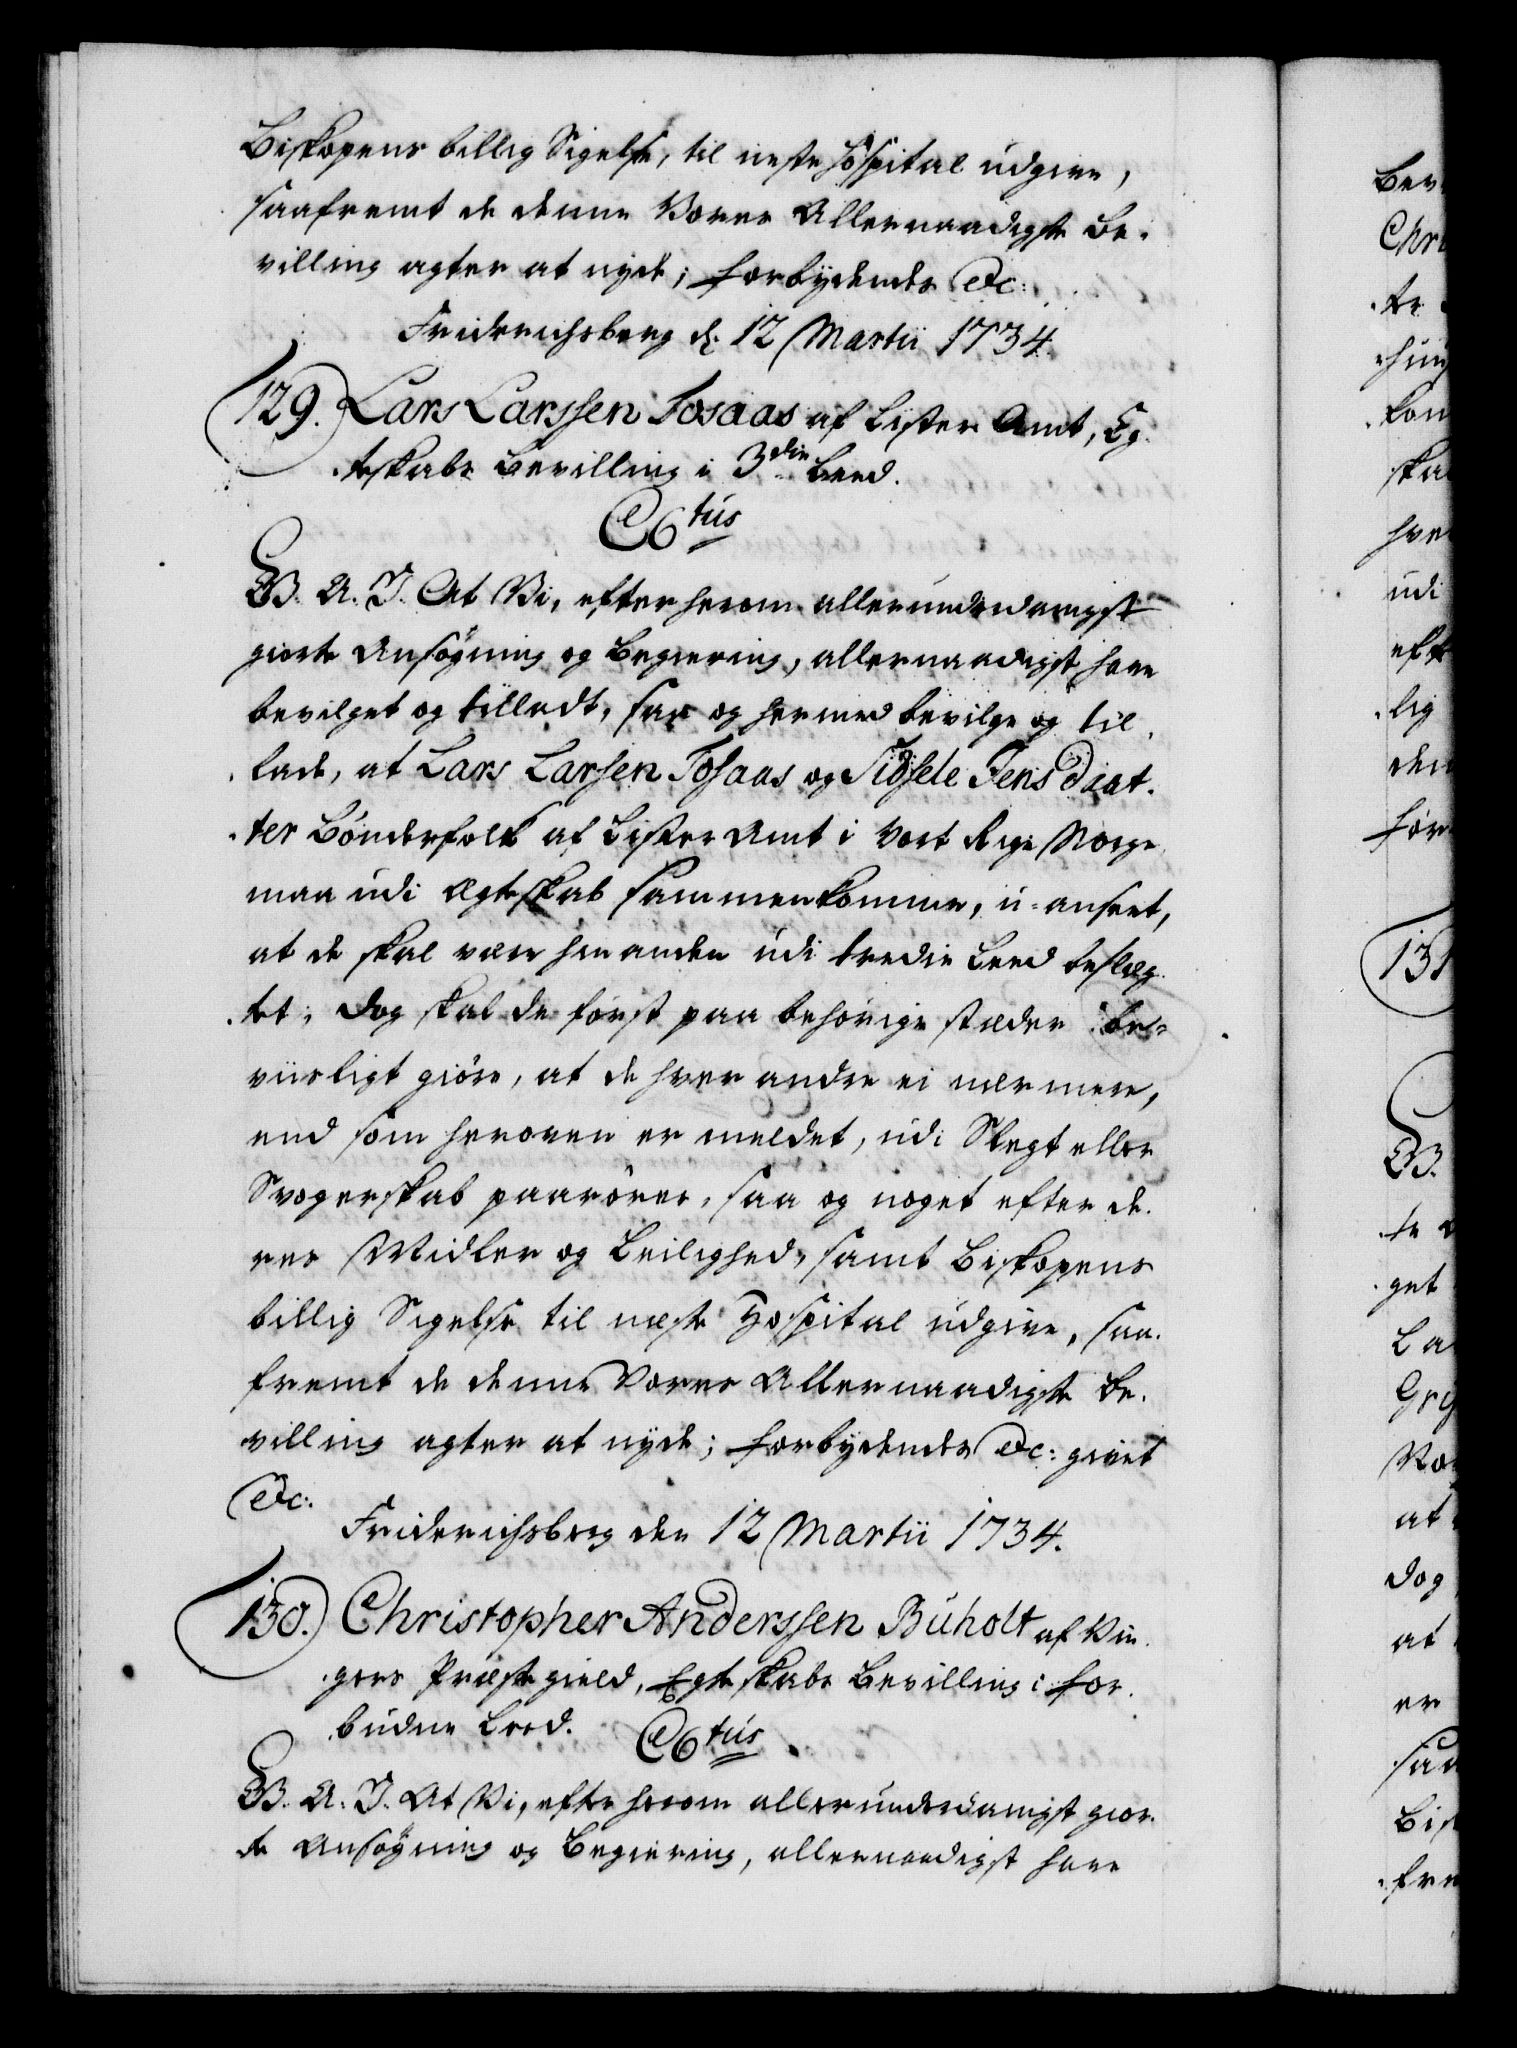 Biskopens billig Sigelse, til neste Hospital udgive,
saafremt de denne Vores Allernaadigste Be-
villing agter at nyde; forbydendes &c:
Friderichsberg d. 12 Martii 1734.
129. Lars Larssen Tosaas af Lister Amt, Eg-
teskabs Bevilling i 3die Leed.
C6tus
G.B. A. V. At Vi, efter herom allerunderdanigst
giorte Ansøgning og Begiering, allernaadigst have
bevilget og tilladt, saa og hermed bevilge og til-
lade, at Lars Larsen Tosaas og Sidsele Jens Daat-
ter Bønderfolk af Lister Amt i Vort Rige Norge
maa udi Ægteskab sammenkomme, u-anseet,
at de skal være hinanden udi tredie Leed beslæg-
tet; Dog skal de først paa behørige stæder be-
viisligt giöre, at de hver andre ei nærmere,
end som heroven er meldet, udi Slegt eller
Svogerskab paarörer, saa og noget efter de-
res Midler og Leilighed, samt Biskopens
billig Sigelse til næste Hospital udgive, saa-
fremt de denne Vores Allernaadigste Be-
villing agter at nyde; forbydendes &c: givet
&c:
Friderichsberg den 12 Martii 1734.
130. Christopher Anderssen Buholt af Vin-
gers Præstegield, Egteskabs Bevilling i for-
budne Leed.
C6tus
G.B. A. V. At Vi, efter herom allerunderdanigst gior-
te Ansøgning og Begiering, allernaadigst have